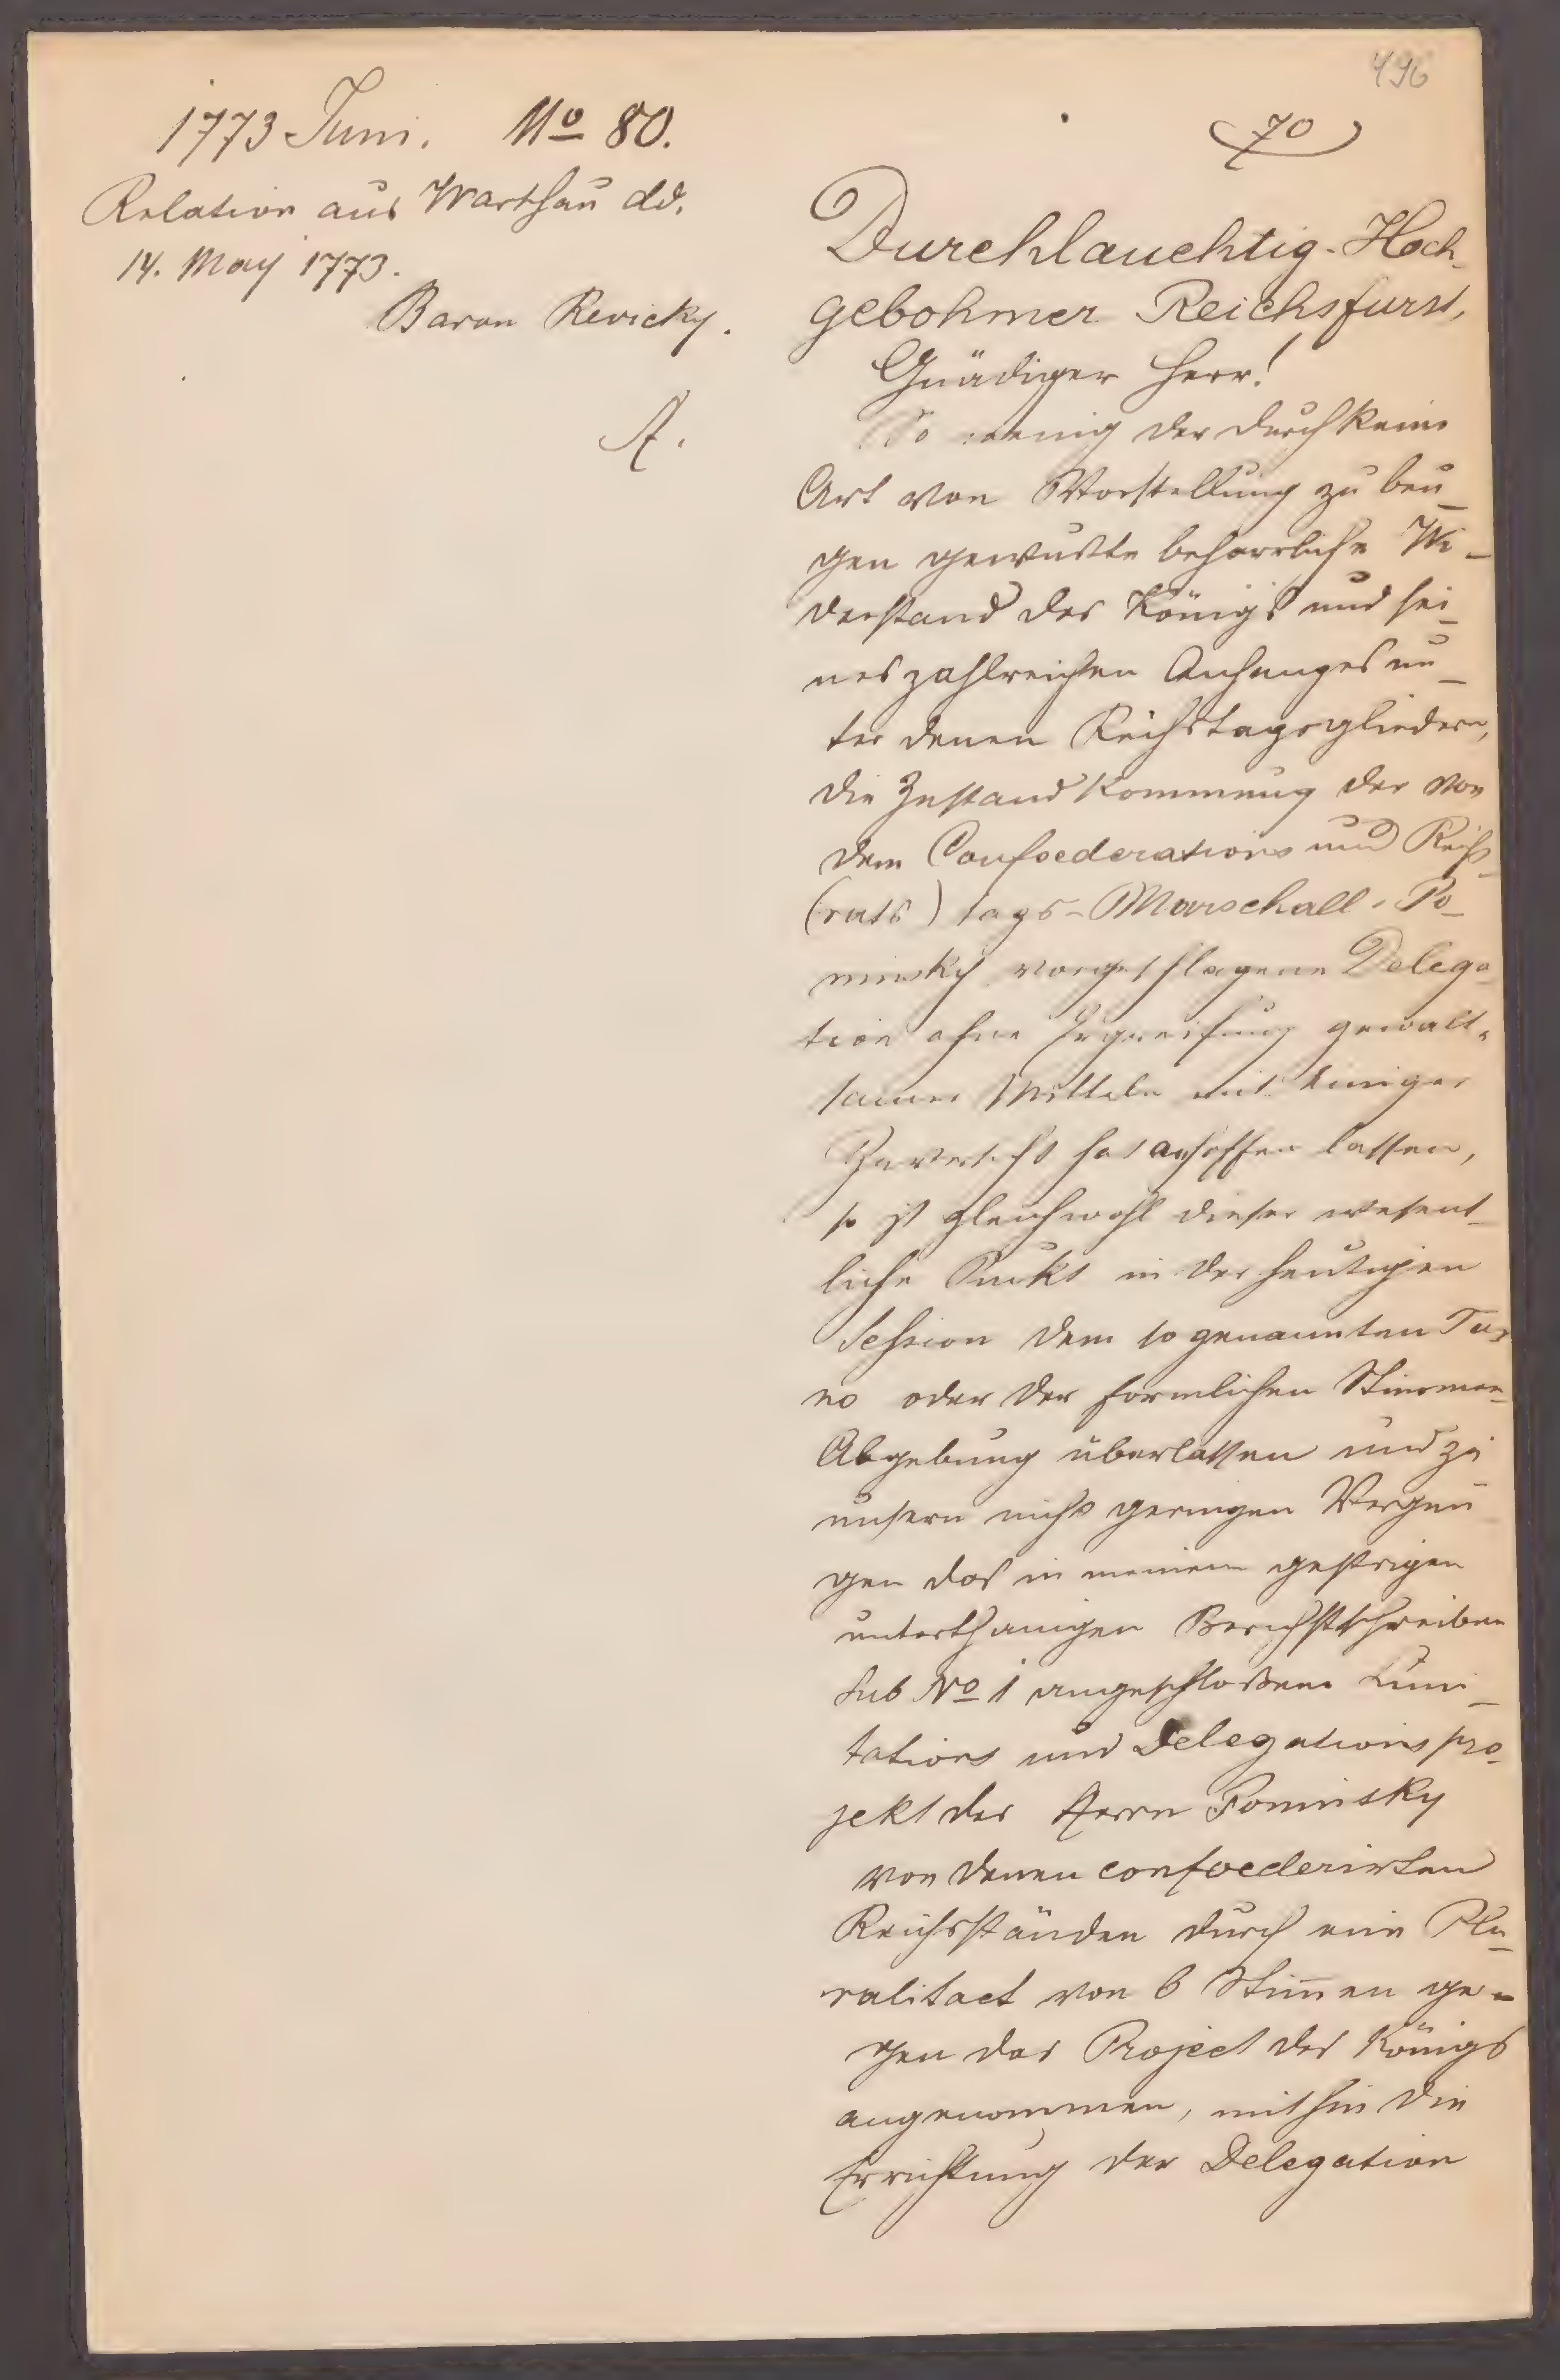 496
1773 Juni. No 80.
70
Relation aus Warschau dd.
14. May 1773.
Baron Revicky.
A.
Durchlauchtig-Hoch-
gebohrner Reichsfürst,
Gnädiger Herr!
So wenig der durch keine
Art von Vorstellung zu beu-
gen gewußte beharrliche Wi-
derstand des Königs und sei-
nes zahlreichen Anhanges un-
ter denen Reichstagsgliedern,
die Zustandkommung der von
dem Confoederations und Reichs-
(rats) tags-Marschall Po-
ninsky vorgeschlagene Delega-
tion ohne Ergreifung gewalt-
samer Mitteln mit einiger
Zuversicht hat anhoffen lassen,
so ist gleichwohl dieser wesent-
liche Punkt in der heutigen
Session dem so genannten Tur-
no oder der formlichen Stimmen-
Abgebung überlassen und zu
unsern nicht geringen Vergnü-
gen das in meinem gestrigen
unterthänigen Berichtschreiben
sub No 1 angeschloßene Limi-
tations und Delegationspro-
jekt des Herrn Poninsky
von denen confoederirten
Reichsständen durch eine Plu-
ralitaet von 6 Stimen ge-
gen das Project des Königs
angenommen, mithin die
Errichtung der Delegation